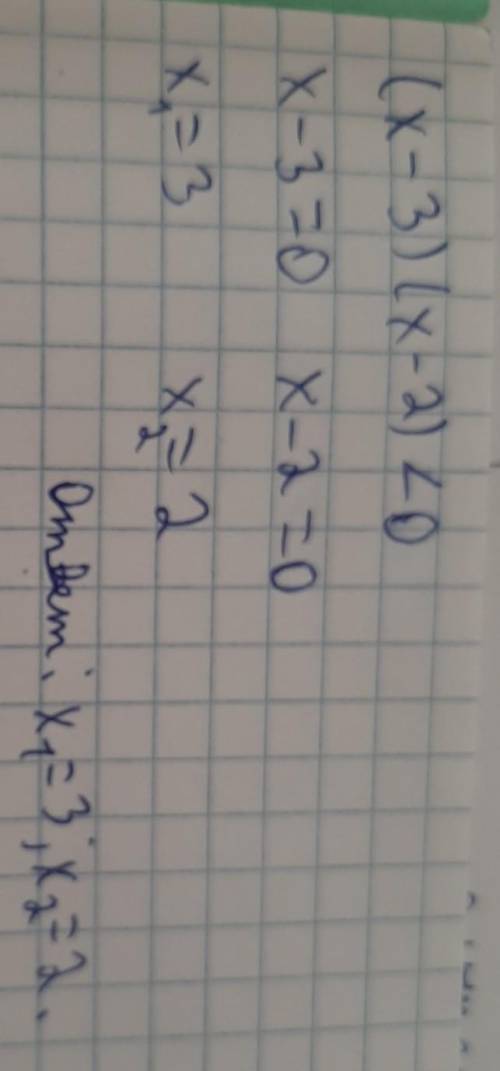 (x-3)(x-2)<0
x-3=0 x-2=0
x₁=3 x₂=2
Ответ: x₁=3; x₂=2.